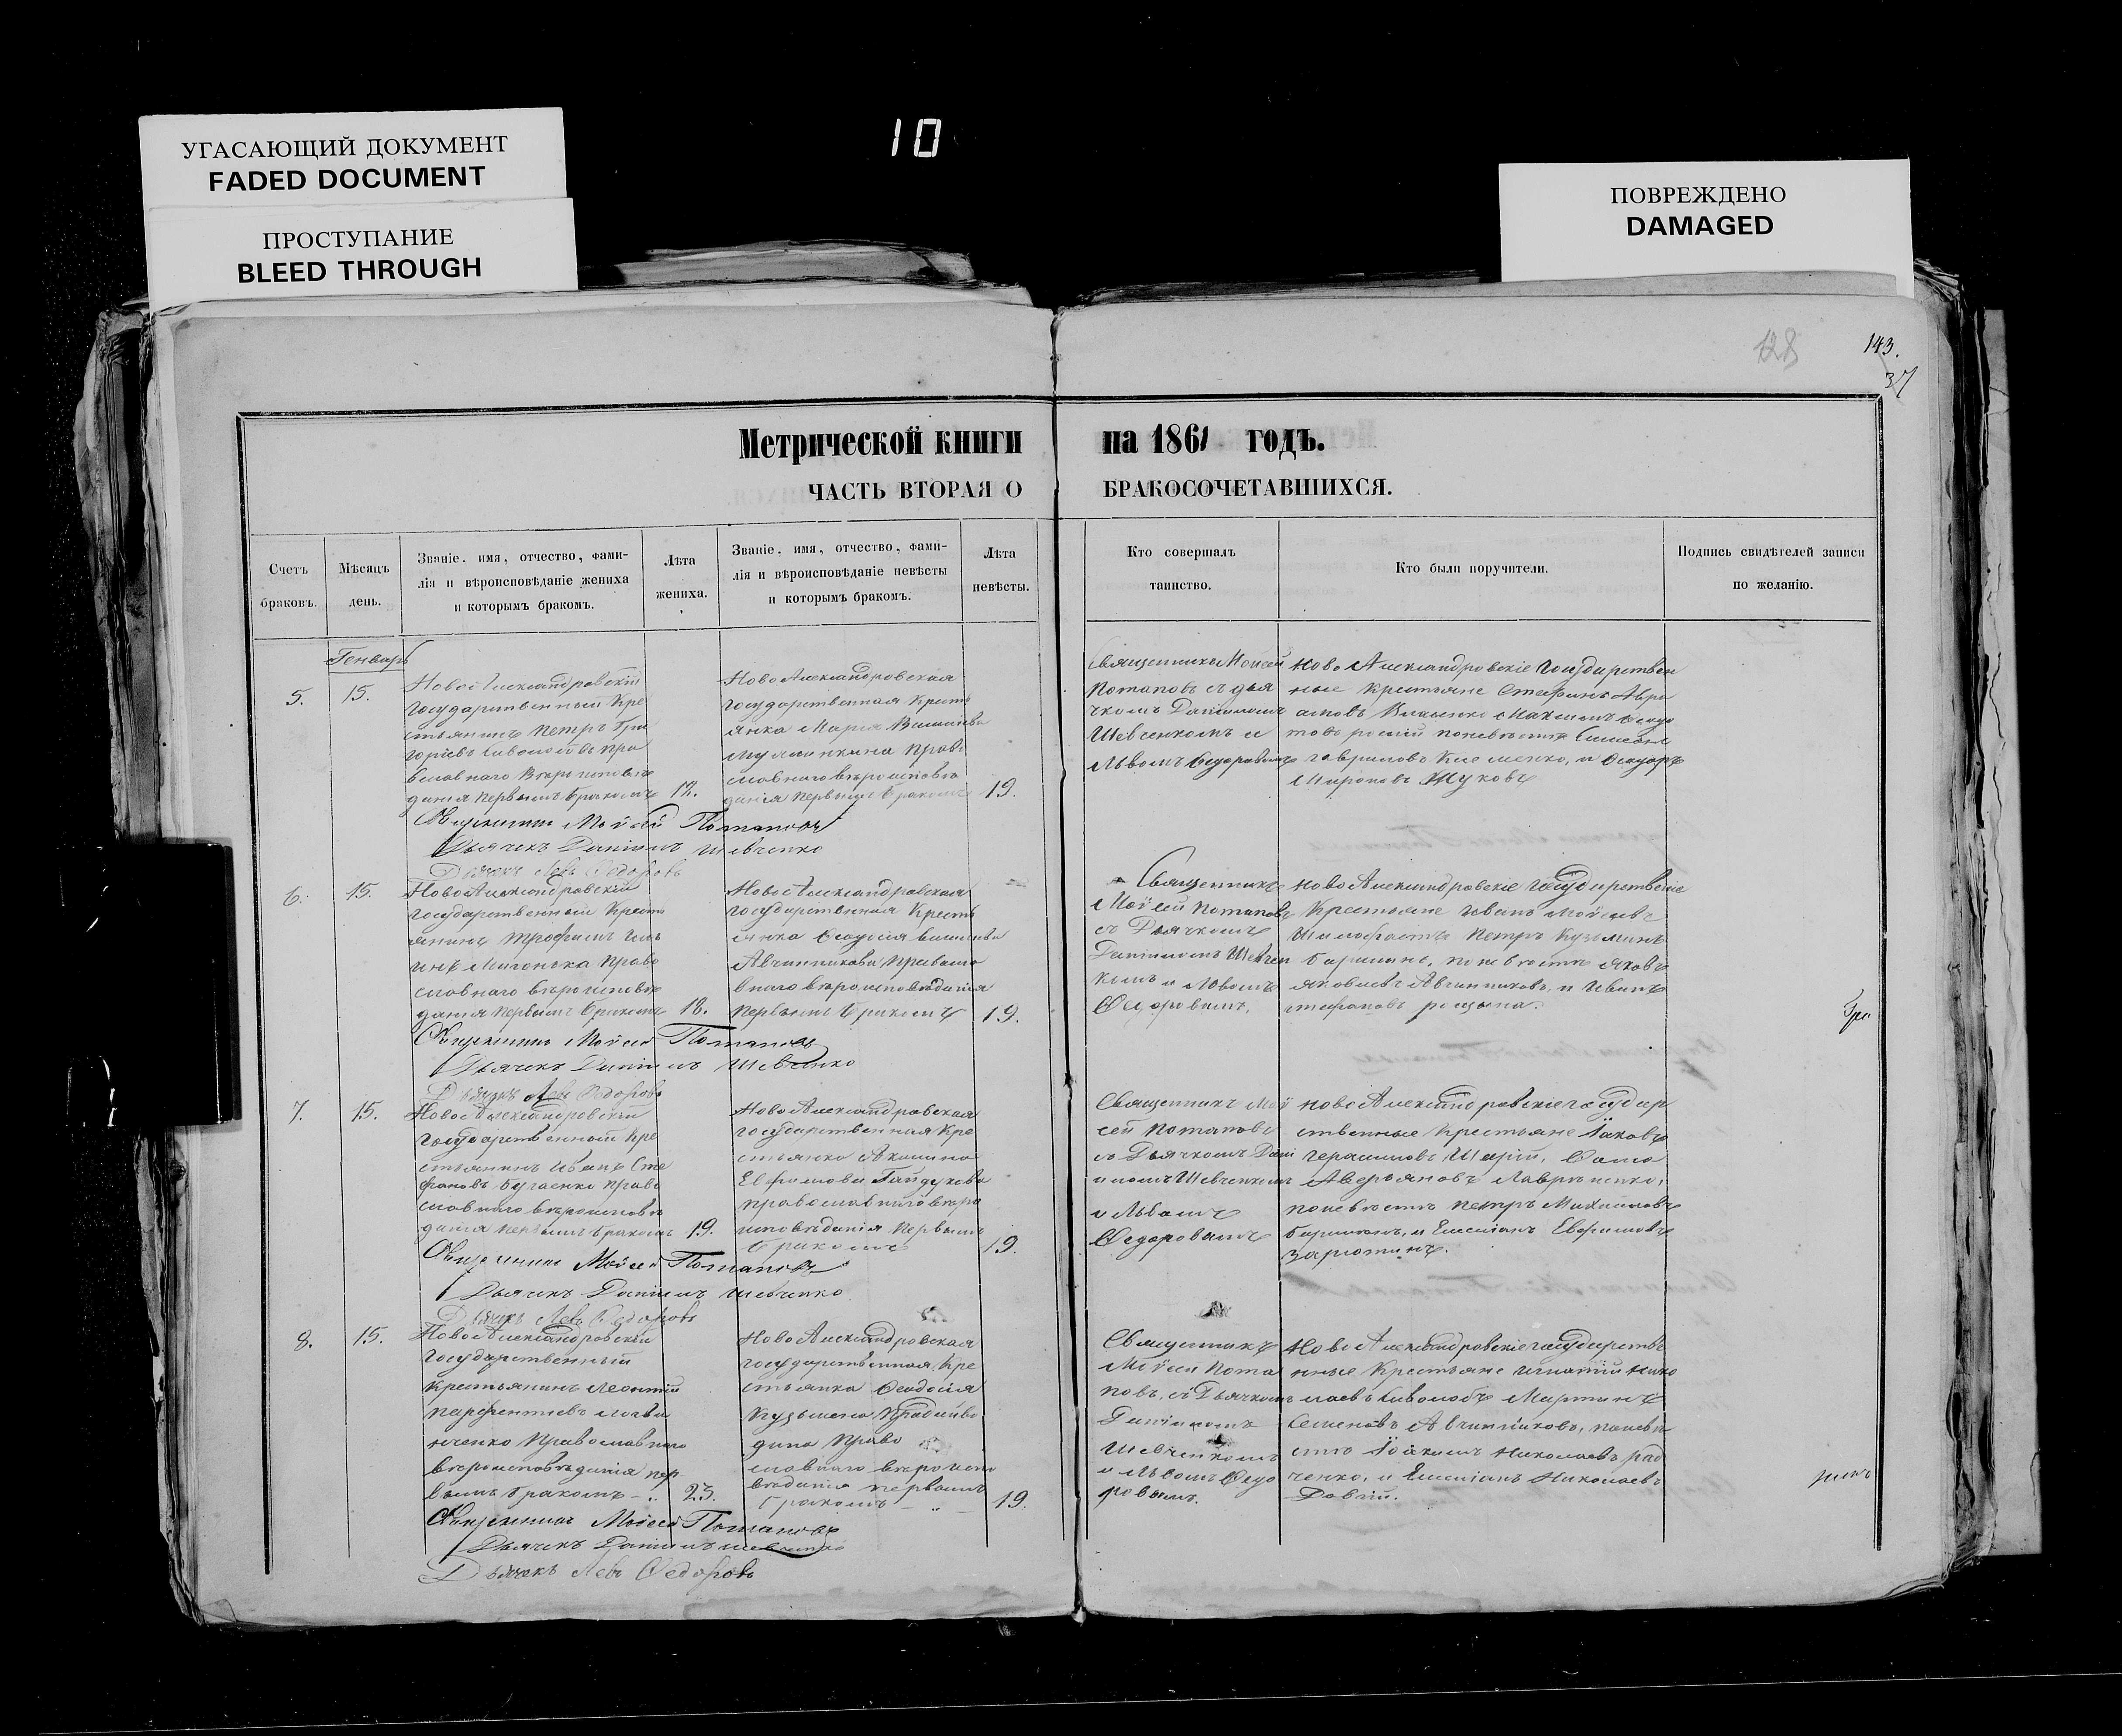 УГАСАЮЩИЙ ДОКУМЕНТ
FADED DOCUMENT
ПРОСТУПАНИЕ
BLEED THROUGH
10
ПОВРЕЖДЕНО
DAMAGED
128
143.
37
Метрической книги на 1861 годъ.
ЧАСТЬ ВТОРАЯ О БРАКОСОЧЕТАВШИХСЯ.
Счетъ
браковъ.
Мѣсяцъ
день.
Званіе, имя, отчество, фами-
лія и вѣроисповѣданіе жениха
и которымъ бракомъ.
Лѣта
жениха.
Званіе, имя, отчество, фами-
лія и вѣроисповѣданіе невѣсты
и которымъ бракомъ.
Лѣта
невѣсты.
Кто совершалъ
таинство.
Кто были поручители.
Подпись свидѣтелей записи
по желанію.
Генварь
5.
15.
НовоАлександровскій
государственный Кре
стьянинъ Петръ Гри
горіевъ пра
вославнаго Вѣроисповѣ
данія первымъ бракомъ
НовоАлександровская
государственная Кресть
янка Марія
право
славнаго вѣроисповѣ
данія первымъ бракомъ
19.
Священникъ Моісей
Потаповъ съ дья
чкомъ Даніиломъ
Шевченкомъ и
Львомъ Ѳедоровымъ
Ново Александровскіе государствен
ные крестьяне Стефанъ Авра
амовъ Максимъ
по невѣстѣ
Гавриловъ и Ѳеодоръ
Мироновъ Жуковъ
Священникъ Моісей Потаповъ
Дьячекъ Даніилъ Шевченко
Дьячекъ Левъ Ѳедоровъ
6.
15.
НовоАлександровскій
государственный Кресть
янинъ Трофимъ Иль
инъ право
славнаго вѣроисповѣ
данія первымъ бракомъ
18.
НовоАлександровская
государственная Кресть
янка Ѳеодосія
Авчинникова, Правосла
внаго вѣроисповѣданія
первымъ бракомъ
19.
Священникъ
Моісей Потаповъ
съ Дьячкомъ
Данииломъ Шевчен
комъ и Львомъ
Ѳедоровымъ.
НовоАлександровскіе государственые
Крестьяне Иванъ Моісеевъ
Петръ Кузьминъ
по невѣстѣ Яковъ
Яковлевъ Авчинниковъ, и Иванъ
Стефановъ
Священникъ Моісей Потаповъ
Дьячекъ Даніилъ Шевченко
Дьячекъ Левъ Ѳедоровъ
7.
15.
НовоАлександровскій
государственный Кре
стьянинъ Иванъ Сте
фановъ Бугаенко право
славнаго вѣроисповѣ
данія первымъ бракомъ
19.
НовоАлександровская
государственная Кре
стьянка Акилина
Евфимова Гайдукова
православнаго вѣро
исповѣданія первымъ
бракомъ
19.
Священникъ Мой
сей Потаповъ
съ Дьячкомъ Дані
иломъ Шевченкомъ
и Львомъ
Ѳедоровымъ
НовоАлександровскіе государ
ственные Крестьяне Іаковъ
Герасимовъ Ѳома
Аверьяновъ Лавриненко,
по невѣстѣ Петръ Михайловъ
и Емеліанъ Евфимовъ
Священникъ Моісей Потаповъ
Дьячекъ Даніилъ Шевченко
Дьячекъ Левъ Ѳедоровъ
8.
15.
НовоАлександровскій
государственный
Крестьянинъ Леонтій
Парфентіевъ
Православнаго
вѣроисповѣданія пер
вымъ бракомъ
23.
НовоАлександровская
государственная Кре
стьянка Ѳеодосія
Кузьмена
Право
славнаго вѣроиспо
вѣданія первымъ
бракомъ
19.
Священникъ
Моісей Пота
повъ, съ Дьячкомъ
Даніиломъ
Шевченкомъ
и Львомъ Ѳедо
ровымъ.
НовоАлександровскіе государстве
нные Крестьяне Игнатій Нико
лаевъ Мартинъ
Семеновъ Авчинниковъ, по невѣ
стѣ Іоакимъ Николаевъ Рад
ченко, и Емеліанъ Николаевъ
Довгій.
Священникъ Моісей Потаповъ
Дьячекъ Даніилъ Шевченко
Дьячекъ Левъ Ѳедоровъ